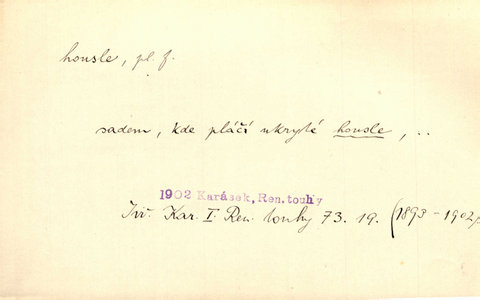 housle, pl. f.
sadem, kde pláčí ukryté housle, ..
1902 Karásek, Ren.touhy
Kar. I Ren. touhy 73. 19. (1893-1902)